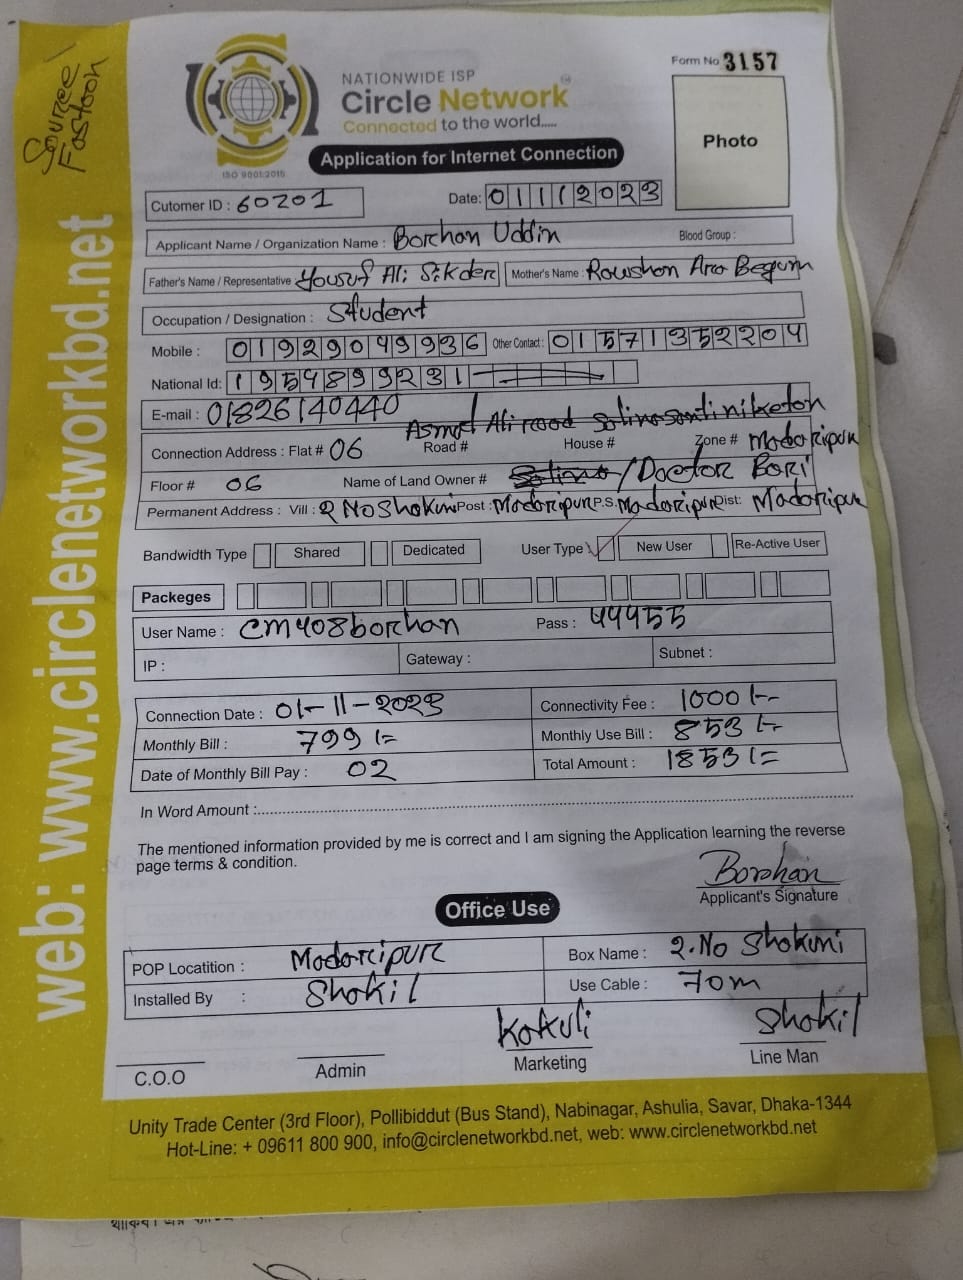 Source
Fastoon
NATIONWIDE ISP
Circle Network
Connected to the world.....
ISO 9001:2015
Form No 3157
Photo
Application for Internet Connection
Cutomer ID : 60201
Date: 01112023
Applicant Name / Organization Name : Borhan Uddin Blood Group :
Father's Name / Representative Yousuf Ali Sikder Mother's Name : Rowshon Ara Begum
Occupation / Designation : Student
Mobile : 01929049936 Other Contact : 01571352204
National Id: 1954899231
E-mail : 01826140440
Asmot Ali road
Connection Address : Flat # 06 Road # House # Zone # Madaripur
Floor # 06 Name of Land Owner # / Doctor Bari
Permanent Address : Vill : 2 No Shokuni Post : Madaripur P.S. Madaripur Dist: Madaripur
Bandwidth Type Shared Dedicated User Type New User Re-Active User
Packeges
User Name : cm408borhan Pass : 44455
IP : Gateway : Subnet :
Connection Date : 01-11-2023 Connectivity Fee : 1000/-
Monthly Bill : 799/= Monthly Use Bill : 853/-
Date of Monthly Bill Pay : 02 Total Amount : 1853/=
In Word Amount :
The mentioned information provided by me is correct and I am signing the Application learning the reverse
page terms & condition.
Borhan
Applicant's Signature
Office Use
POP Locatition : Madaripur Box Name : 2.No Shokuni
Installed By : Shokil Use Cable : 70m
Kakuli Shokil
C.O.O Admin Marketing Line Man
Unity Trade Center (3rd Floor), Pollibiddut (Bus Stand), Nabinagar, Ashulia, Savar, Dhaka-1344
Hot-Line: + 09611 800 900, info@circlenetworkbd.net, web: www.circlenetworkbd.net
web: www.circlenetworkbd.net